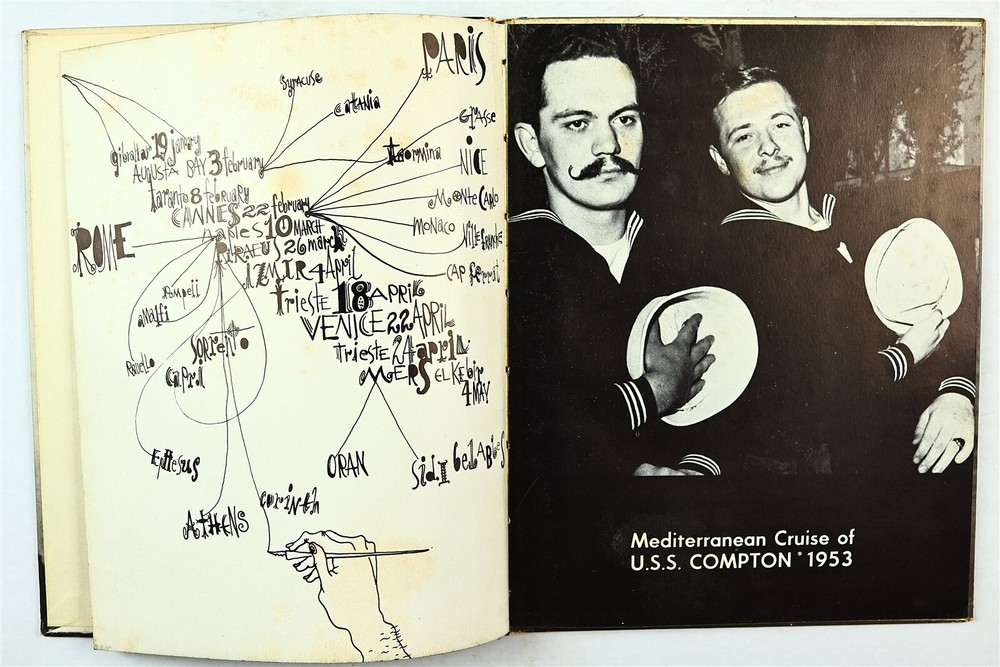 PARIS
Syracuse
Cattania
Grasse
gibraltar 19 january
AUGUSTA BAY 3 february
taormina
NICE
taranto 8 february
MONTE CARLO
CANNES 22 february
MONACO
VILLEFRANCHE
NAPLES 10 MARCH
ROME
PIRAEUS 26 march
CAP ferrat
IZMIR 4 April
Pompeii
Amalfi
trieste 18 APRIL
VENICE 22 APRIL
Sorrento
trieste 24 april
Ravello
Capri
MERS EL Kebir
4 MAY
EPHESUS
ORAN
Sidi bel ABBES
corinth
ATHENS
Mediterranean Cruise of
U.S.S. COMPTON * 1953